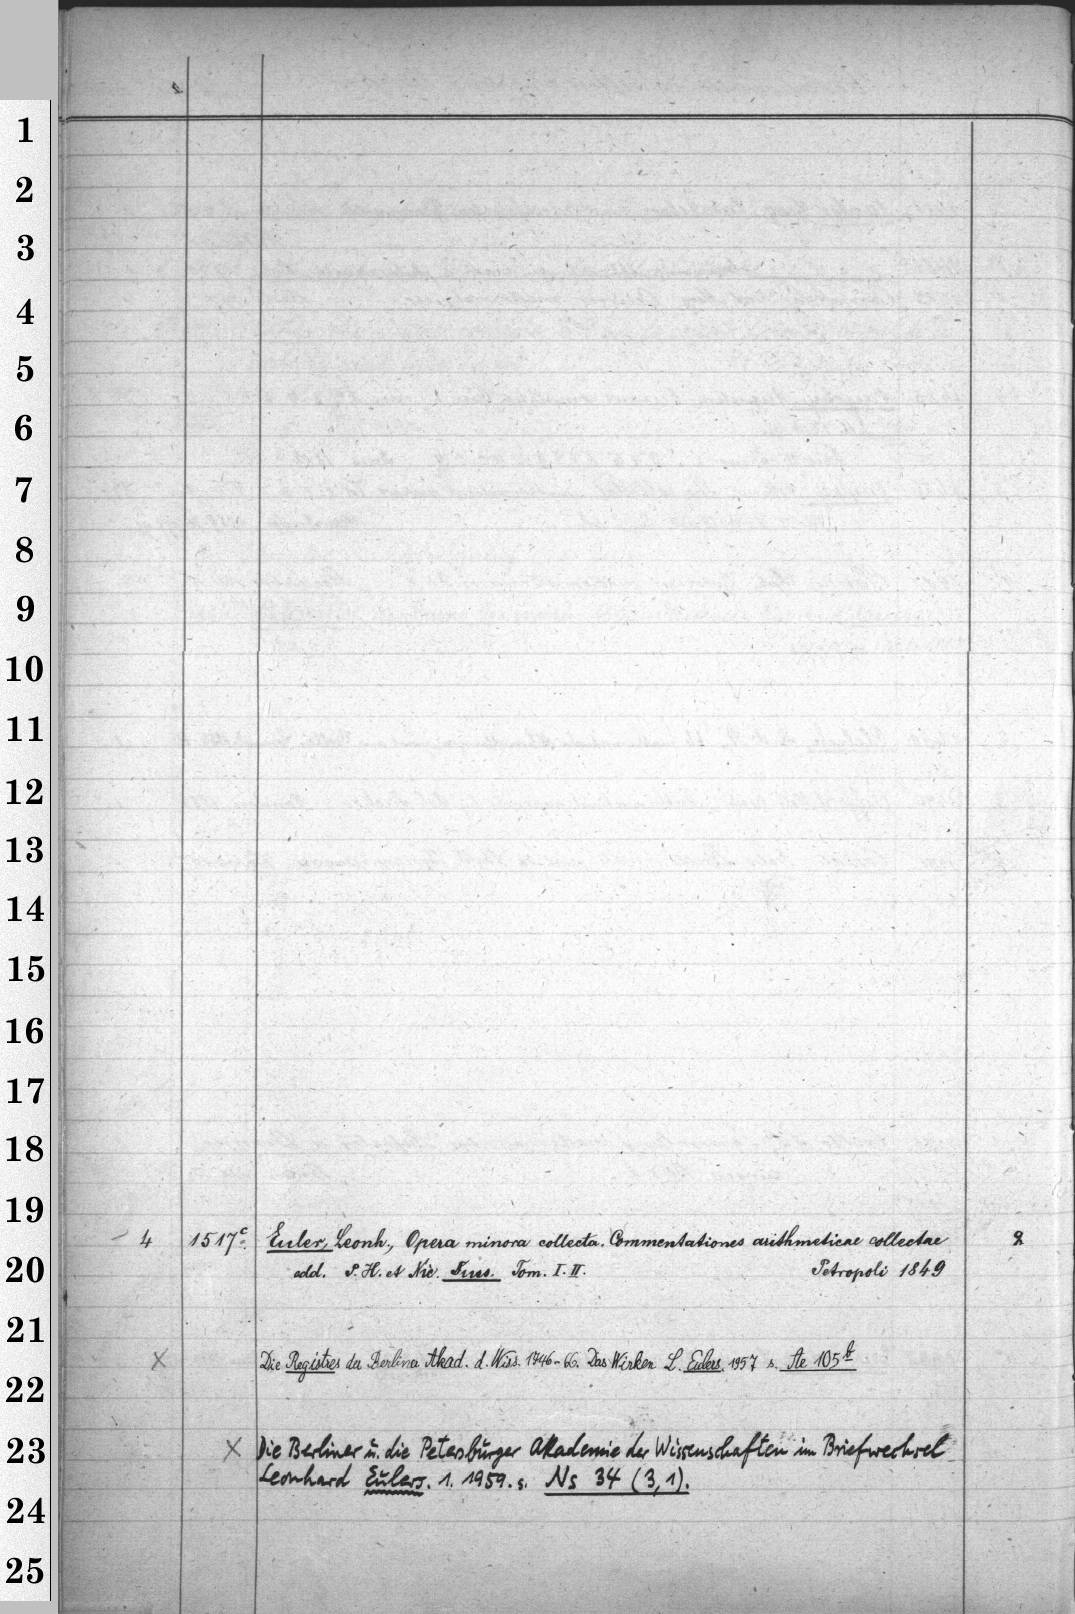 1
2
3
4
5
6
7
8
9
10
11
12
13
14
15
16
17
18
19
4 1517c. Euler, Leonh., Opera minora collecta. Commentationes arithmeticae collectae 2
20
add. P. H. et Nic. Fuss. Tom. I. II. Petropoli 1849
21
X Die Registres der Berliner Akad. d. Wiss. 1746-66. Das Wirken L. Eulers. 1957 s. Ae 105b
22
23
X Die Berliner u. die Petersburger Akademie der Wissenschaften im Briefwechsel
Leonhard Eulers. 1. 1959. s. Ns 34 (3,1).
24
25